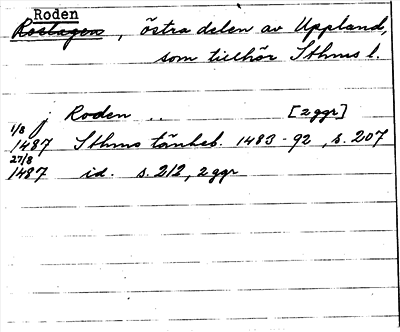 Roden
Roslagen, östra delen av Uppland,
som tillhör Sthms l.
j Roden .. [2 ggr]
1/8
1487 Sthms tänkeb. 1483-92, s. 207
27/8
1487 id. s. 212, 2 ggr